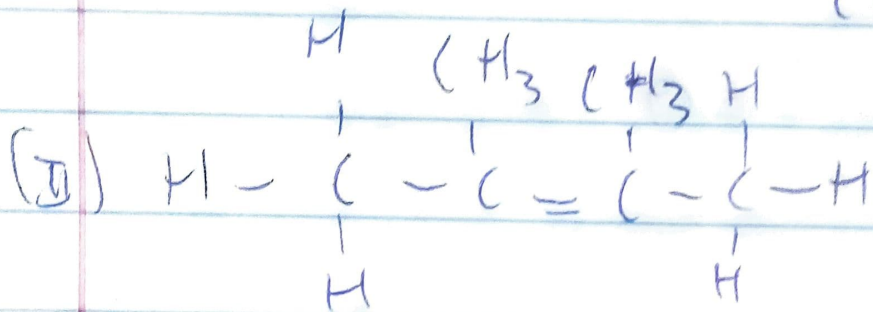 H
CH3 CH3 H
(II) H - C - C = C - C - H
H H